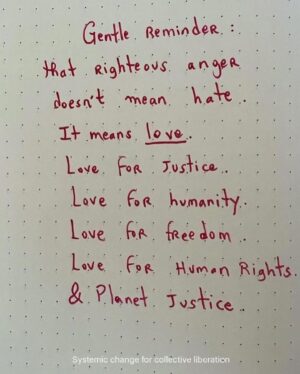 Gentle Reminder :
that righteous anger
doesn't mean hate.
It means love.
Love for Justice.
Love for humanity.
Love for freedom.
Love for Human Rights.
& Planet Justice.
Systemic change for collective liberation